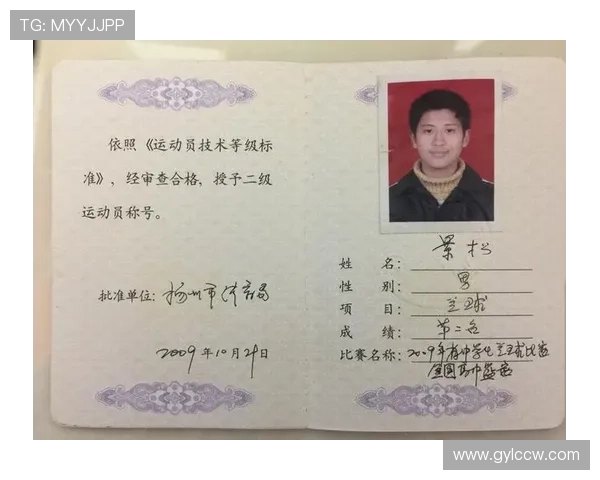 TG: MYYJJPP
依照《运动员技术等级标
准》，经审查合格，授予二级
运动员称号。
批准单位：扬州市体育局
2009年10月29日
姓 名：景松
性 别：男
项 目：足球
成 绩：第二名
比赛名称：2009年省中学生足球比赛
www.gylccw.com